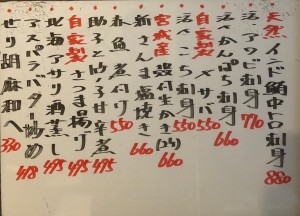 天然インド鮪中トロ刺身 880
活〆アワビ刺身 770
活〆かんぱち刺身 660
自家製〆サバ 550
活〆つぶ貝刺身 550
宮城産 殻付生かき(2ヶ) 660
新さんま塩焼き 660
赤魚煮付 550
助子と白子甘辛煮 495
自家製さつま揚げ 495
北海アサリ酒蒸し 495
アスパラバター炒め 418
せり胡麻和へ 330